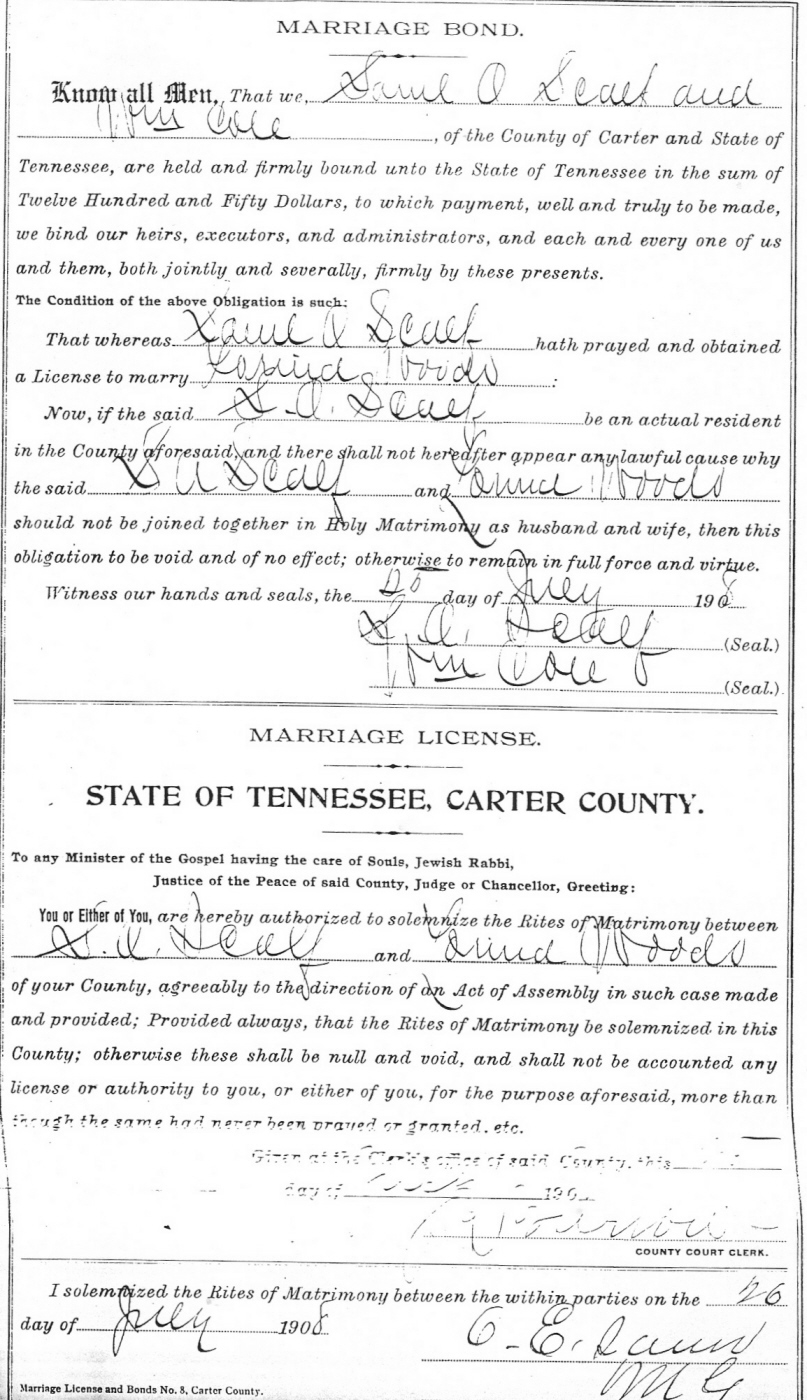 MARRIAGE BOND.
Know all Men, That we, Saml O Scalf and
Wm Cole, of the County of Carter and State of
Tennessee, are held and firmly bound unto the State of Tennessee in the sum of
Twelve Hundred and Fifty Dollars, to which payment, well and truly to be made,
we bind our heirs, executors, and administrators, and each and every one of us
and them, both jointly and severally, firmly by these presents.
The Condition of the above Obligation is such:
That whereas Scalf hath prayed and obtained
a License to marry Woods :
Now, if the said S. A. Scalf be an actual resident
in the County aforesaid, and there shall not hereafter appear any lawful cause why
the said S A Scalf and Woods
should not be joined together in Holy Matrimony as husband and wife, then this
obligation to be void and of no effect; otherwise to remain in full force and virtue.
Witness our hands and seals, the day of July 1908
S. A. Scalf (Seal.)
Wm Cole (Seal.)
MARRIAGE LICENSE.
STATE OF TENNESSEE, CARTER COUNTY.
To any Minister of the Gospel having the care of Souls, Jewish Rabbi,
Justice of the Peace of said County, Judge or Chancellor, Greeting:
You or Either of You, are hereby authorized to solemnize the Rites of Matrimony between
S. A. Scalf and Woods
of your County, agreeably to the direction of an Act of Assembly in such case made
and provided; Provided always, that the Rites of Matrimony be solemnized in this
County; otherwise these shall be null and void, and shall not be accounted any
license or authority to you, or either of you, for the purpose aforesaid, more than
though the same had never been prayed or granted, etc.
Given at the Clerk's office of said County, this
day of 190
COUNTY COURT CLERK.
I solemnized the Rites of Matrimony between the within parties on the 26
day of July 1908
C. E.
M G
Marriage License and Bonds No. 8, Carter County.